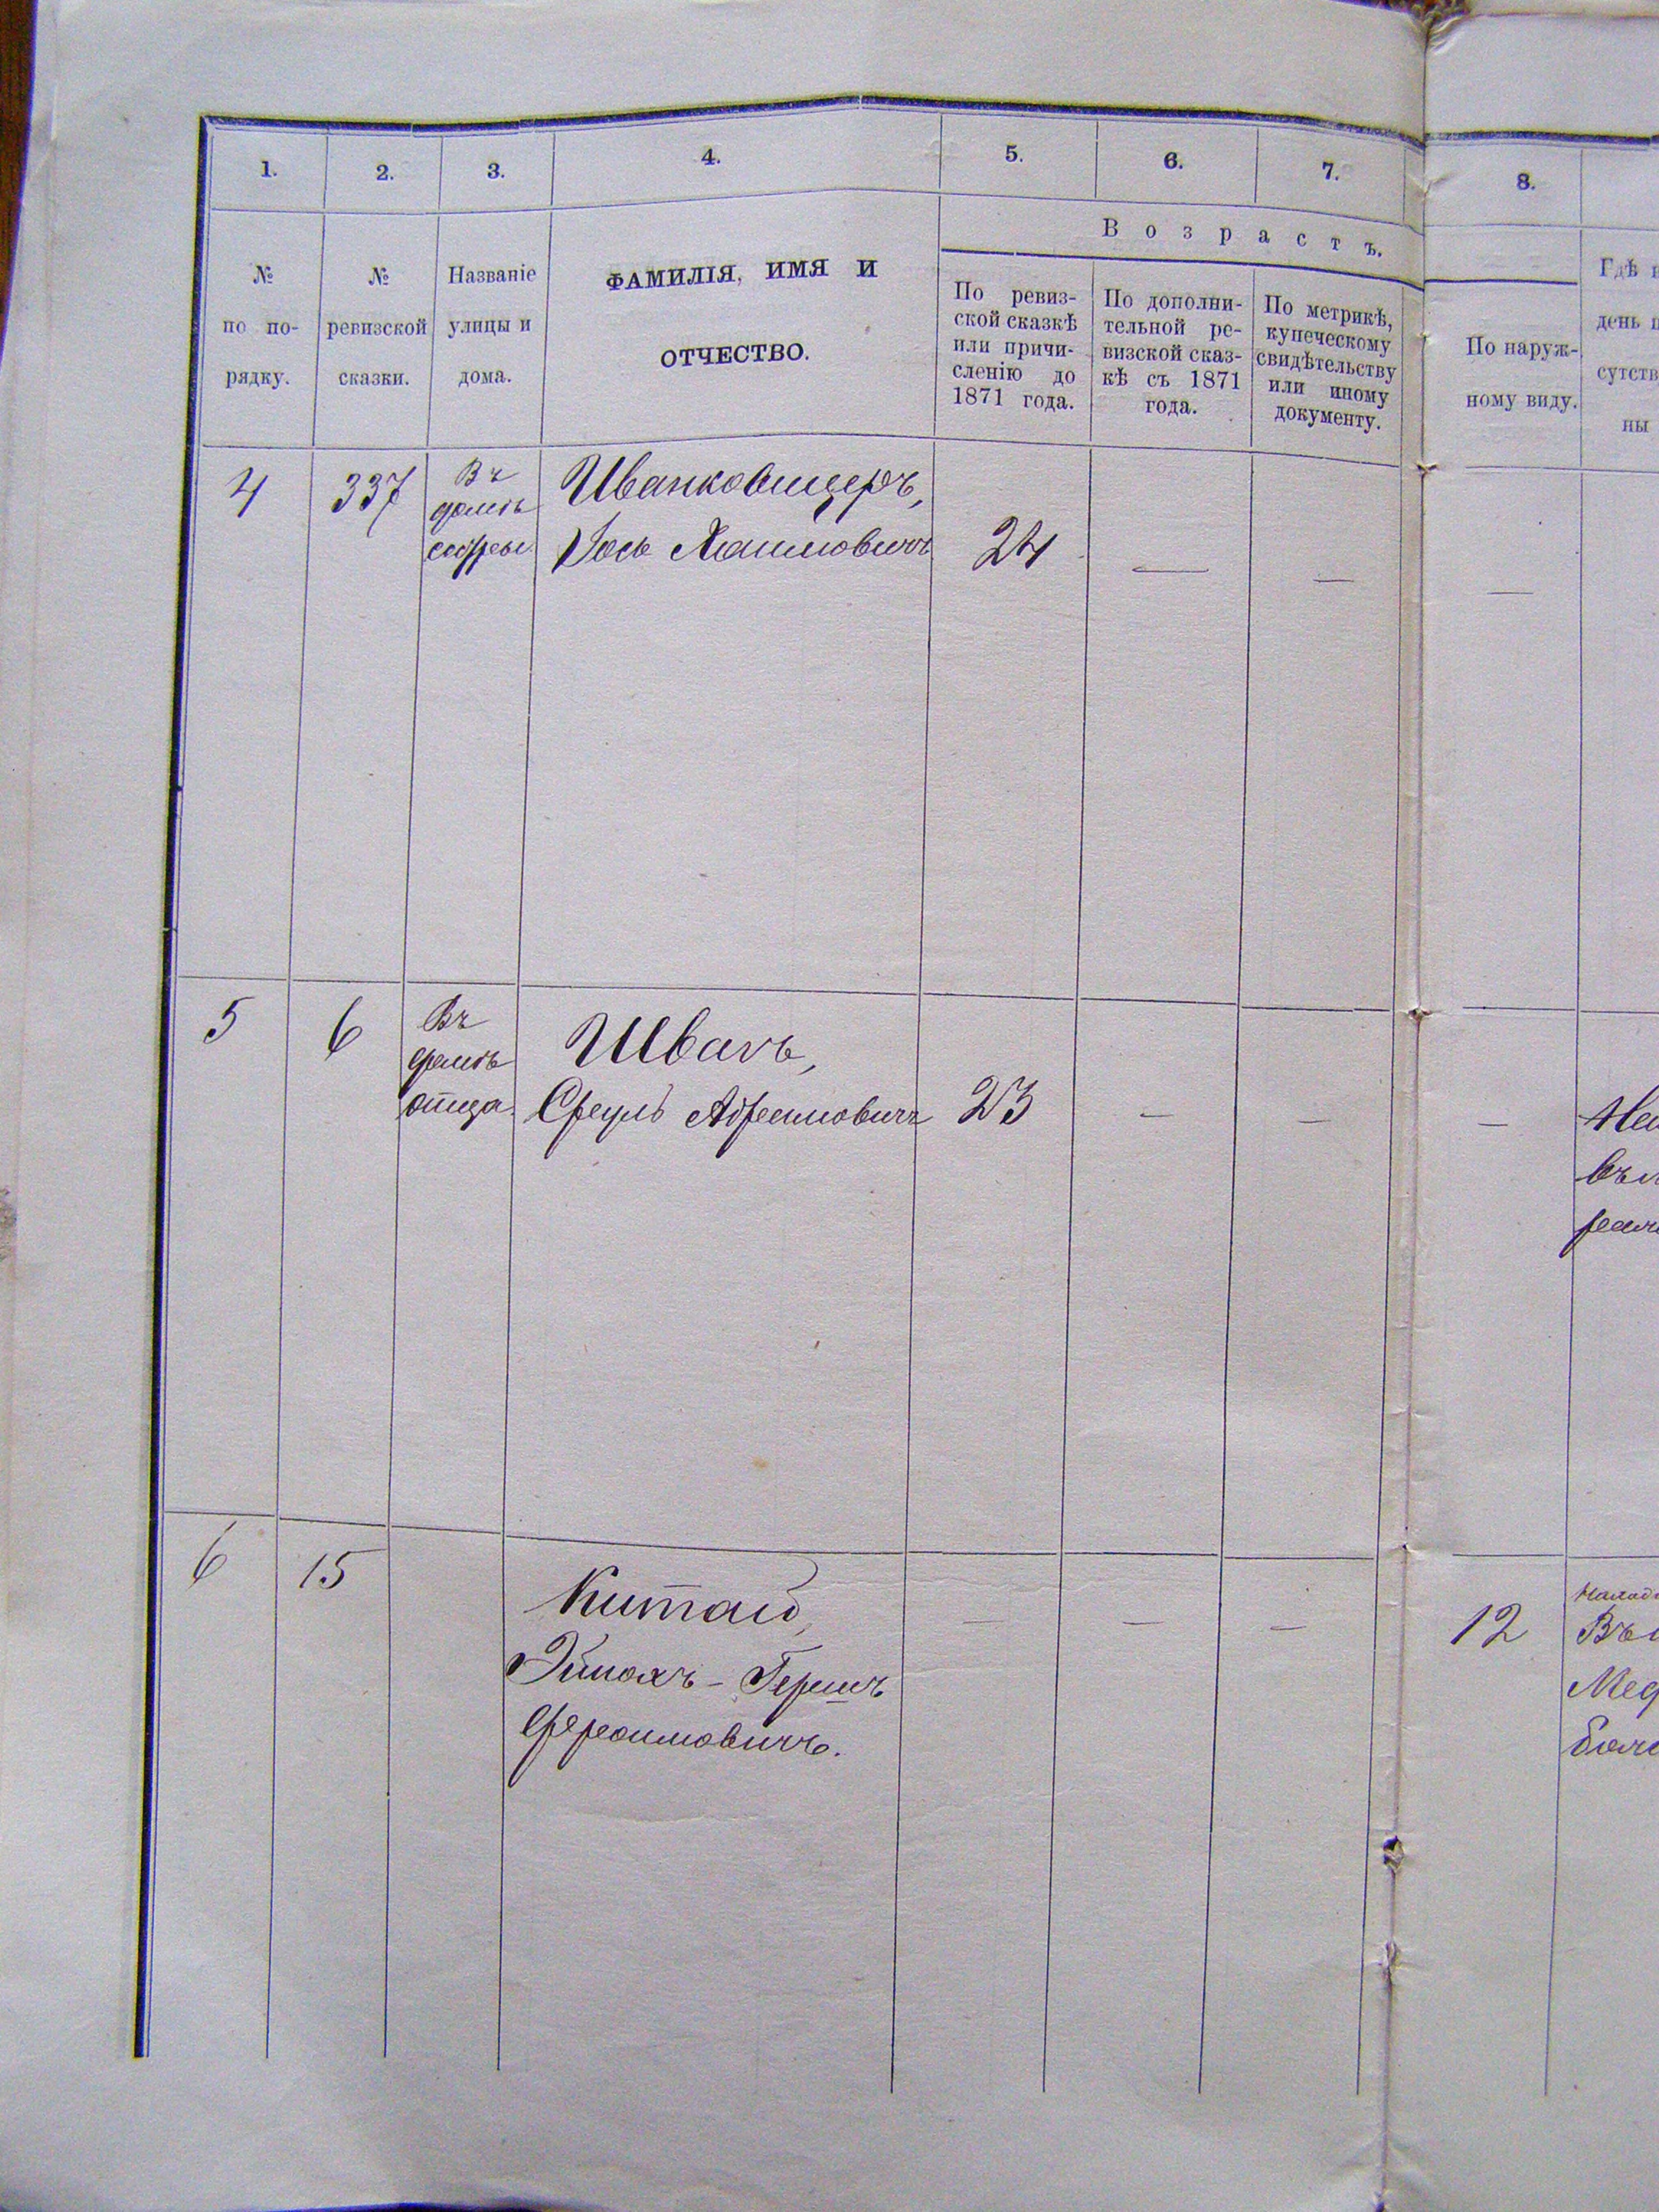 1. 2. 3. 4. 5. 6. 7. 8.
№ по по-рядку.
№ ревизской сказки.
Названіе улицы и дома.
ФАМИЛІЯ, ИМЯ И
ОТЧЕСТВО.
Возрастъ.
По ревиз-
ской сказкѣ
или причи-
сленію до
1871 года.
По дополни-
тельной ре-
визской сказ-
кѣ съ 1871
года.
По метрикѣ,
купеческому
свидѣтельству
или иному
документу.
По наруж-
ному виду.
Гдѣ
день
сутств
ны
4 337 Въ домѣ сестры Иванковицеръ,
Іось Хаимовичъ 24 — — —
5 6 Въ домѣ отца. Швачъ,
Сруль Абрамовичъ 23 — — —
6 15 Китай,
Эймахъ-Гершъ
Фроимовичъ. — — — 12
Въ
Мед